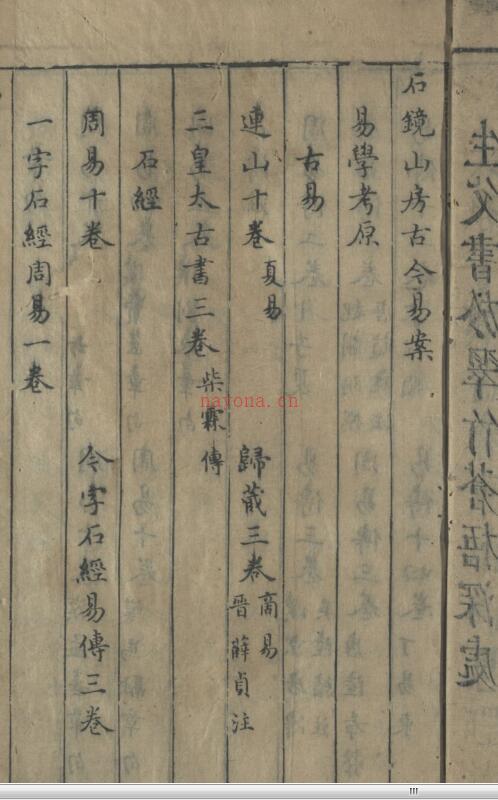 生於書於翠竹蒼梧深處
石鏡山房古今易案
易學考原
古易
連山十卷 夏易 歸藏三卷 商易 晉薛貞注
三皇太古書三卷 柴霖傳
石經
周易十卷 今字石經易傳三卷
一字石經周易一卷
nayona.cn